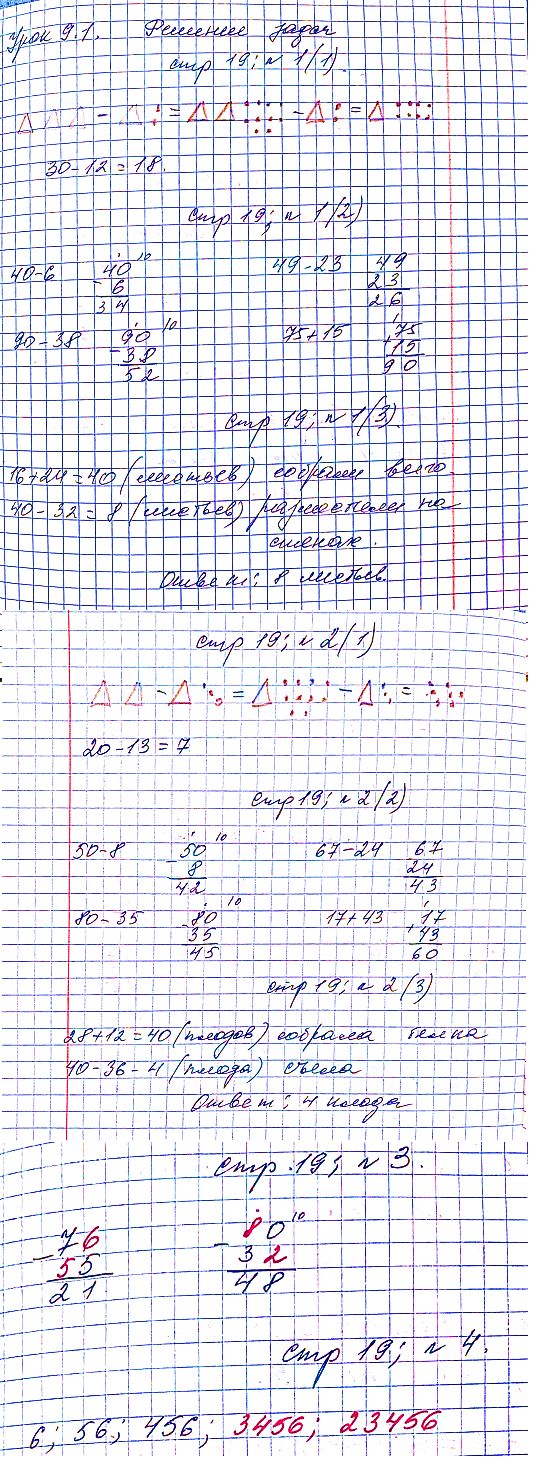 Урок 9.1. Решение задач
стр 19; № 1(1).
30-12=18.
стр 19; № 1(2)
40-6 40 10 49-23 49
- 6 23
34 26
90-38 90 10 75+15 75
- 38 + 15
52 90
стр 19; № 1(3).
16+24=40 (листьев) собрали всего.
40-32=8 (листьев) разместили на
стенах.
Ответ: 8 листьев.
стр 19; № 2(1)
20-13=7
стр 19; № 2(2)
50-8 50 10 67-24 67
- 8 24
42 43
80-35 80 10 17+43 17
35 + 43
45 60
стр 19; № 2(3)
28+12=40 (плодов) собрала белка
40-36-4 (плода) съела
Ответ: 4 плода
стр. 19; № 3.
76 80 10
- 55 - 32
21 48
стр 19; № 4.
6; 56; 456; 3456; 23456